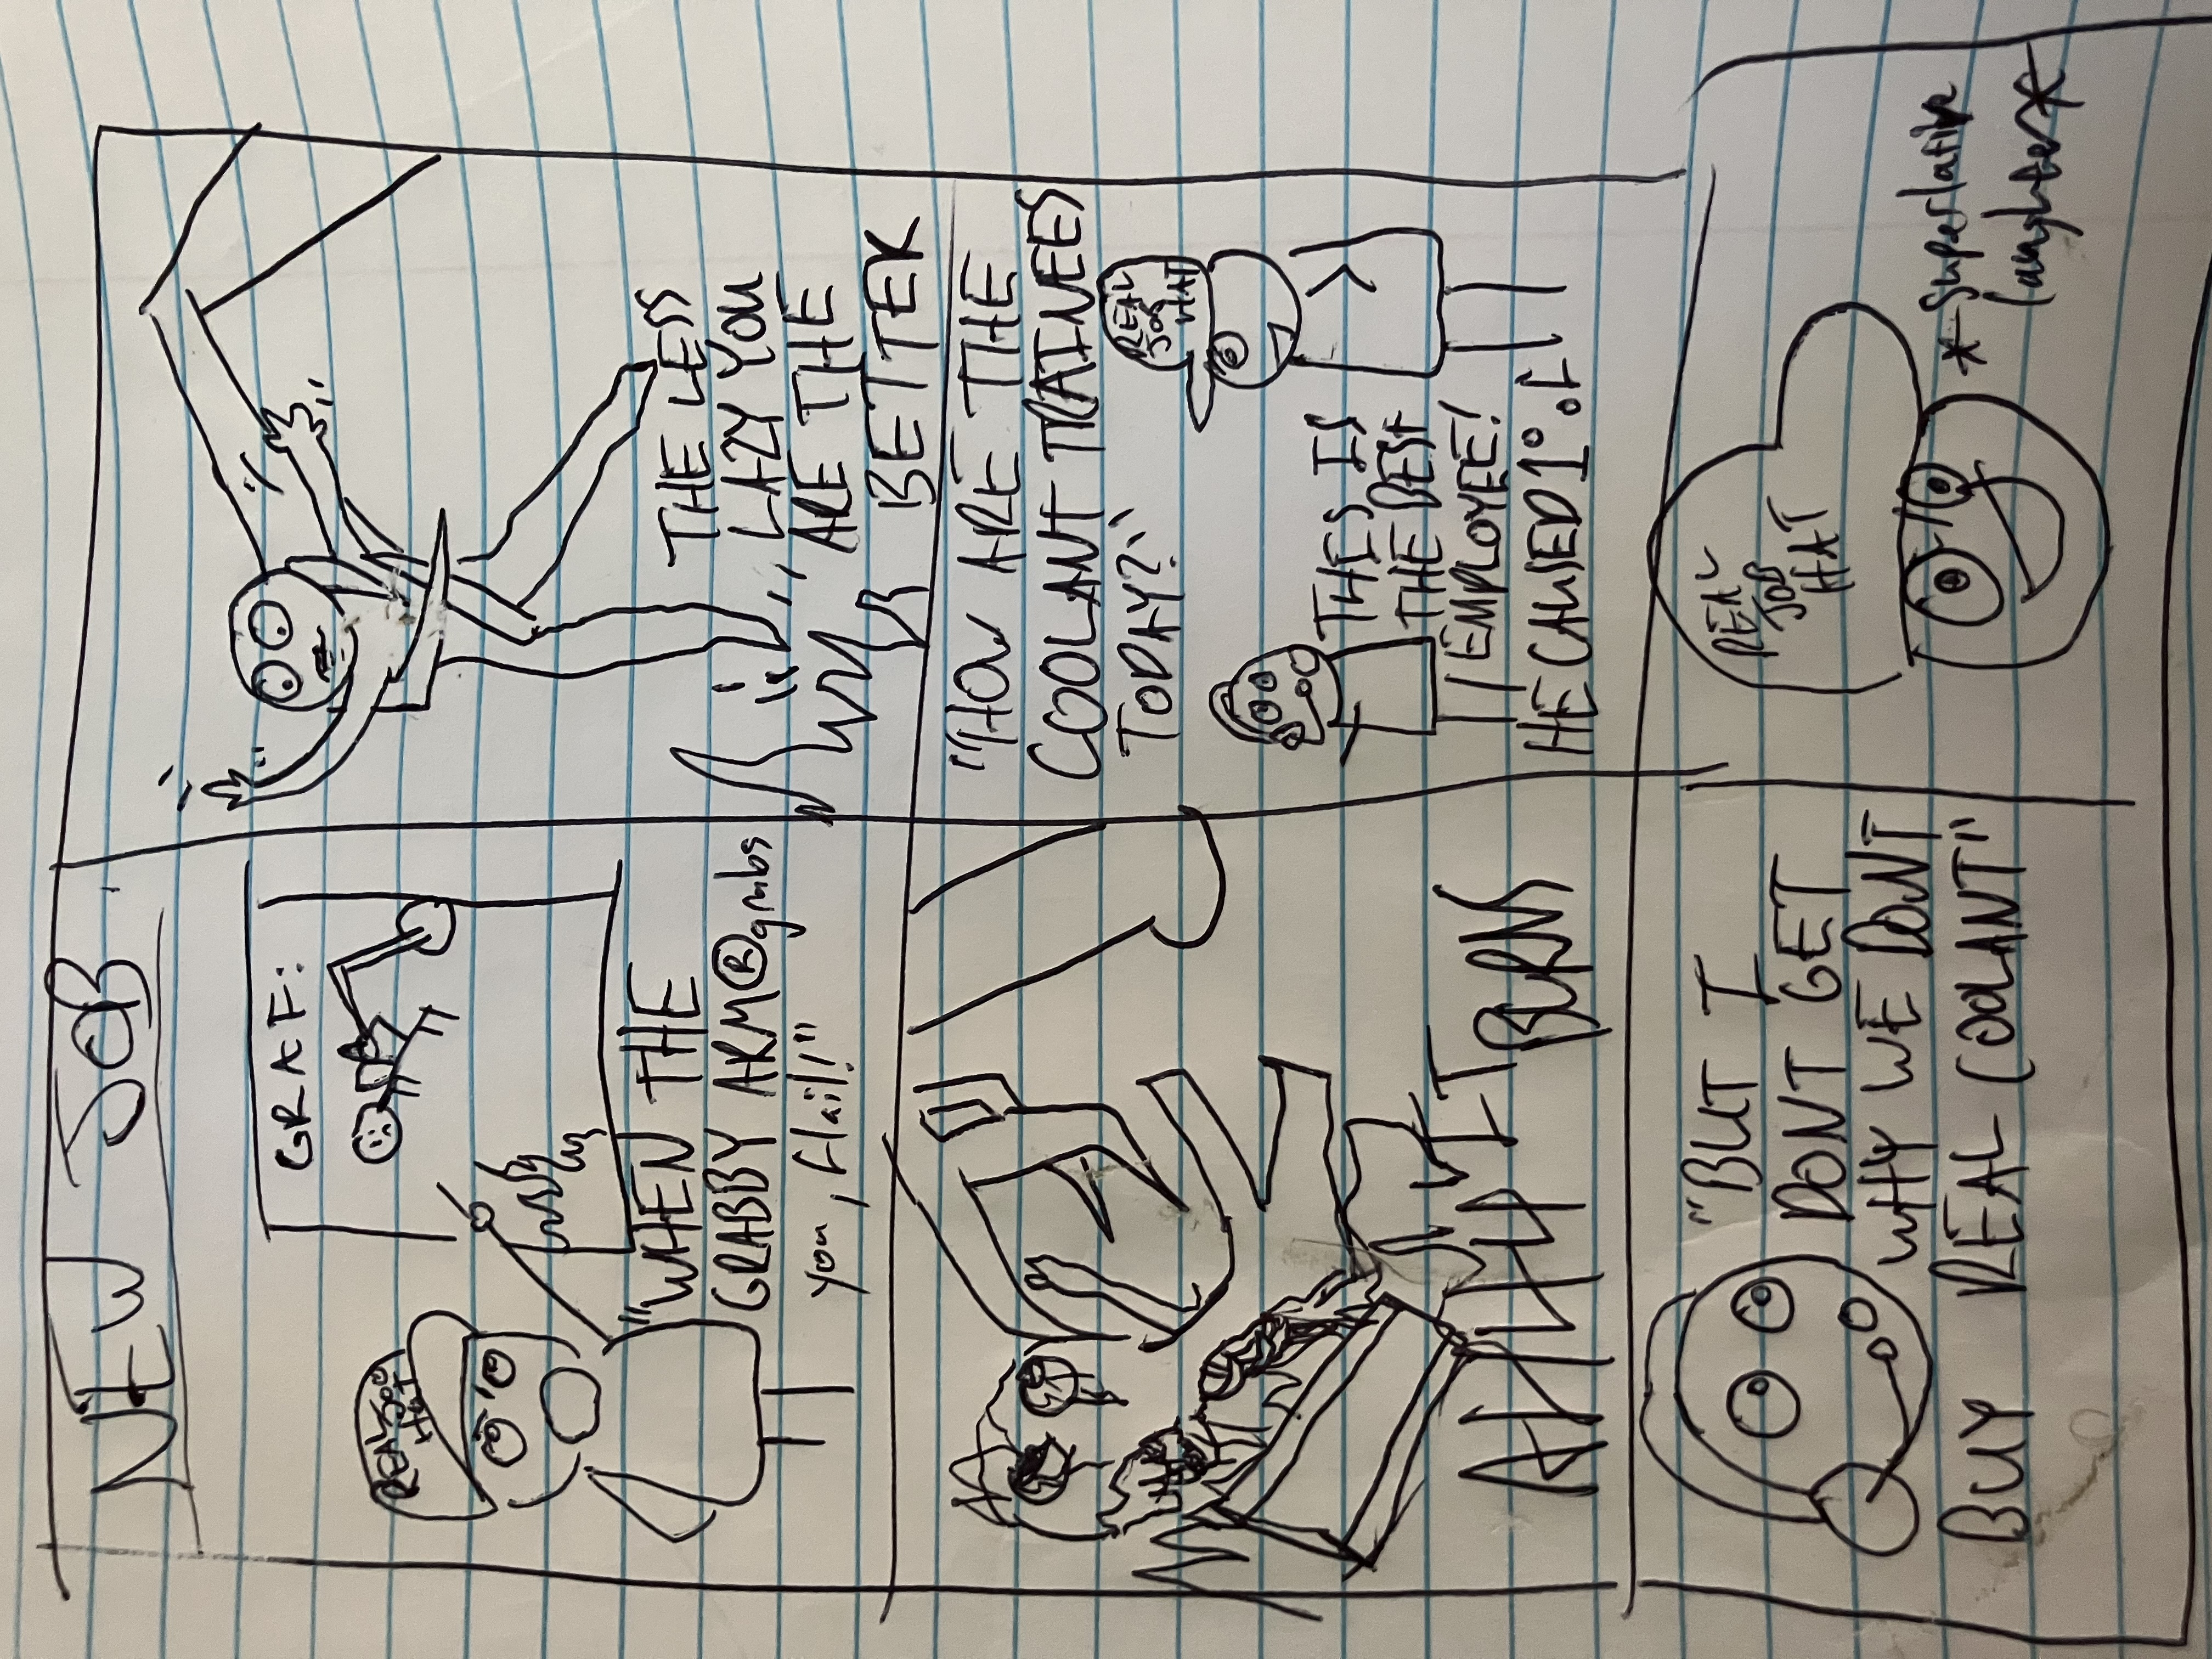 NEW JOB
REAL JOB
HAT
GRAF:
"WHEN THE
GRABBY ARM® grabs
you, flail!"
THE LESS
LAZY YOU
ARE THE
BETTER
AHHH IT BURNS
"HOW ARE THE
COOLANT TRAINEES
TODAY?"
REAL
JOB
HAT
THIS IS
THE BEST
EMPLOYEE!
HE CAUSED 1°!
"BUT I
DONT GET
WHY WE DONT
BUY REAL COOLANT"
REAL
JOB
HAT
*Superlative
laughter*